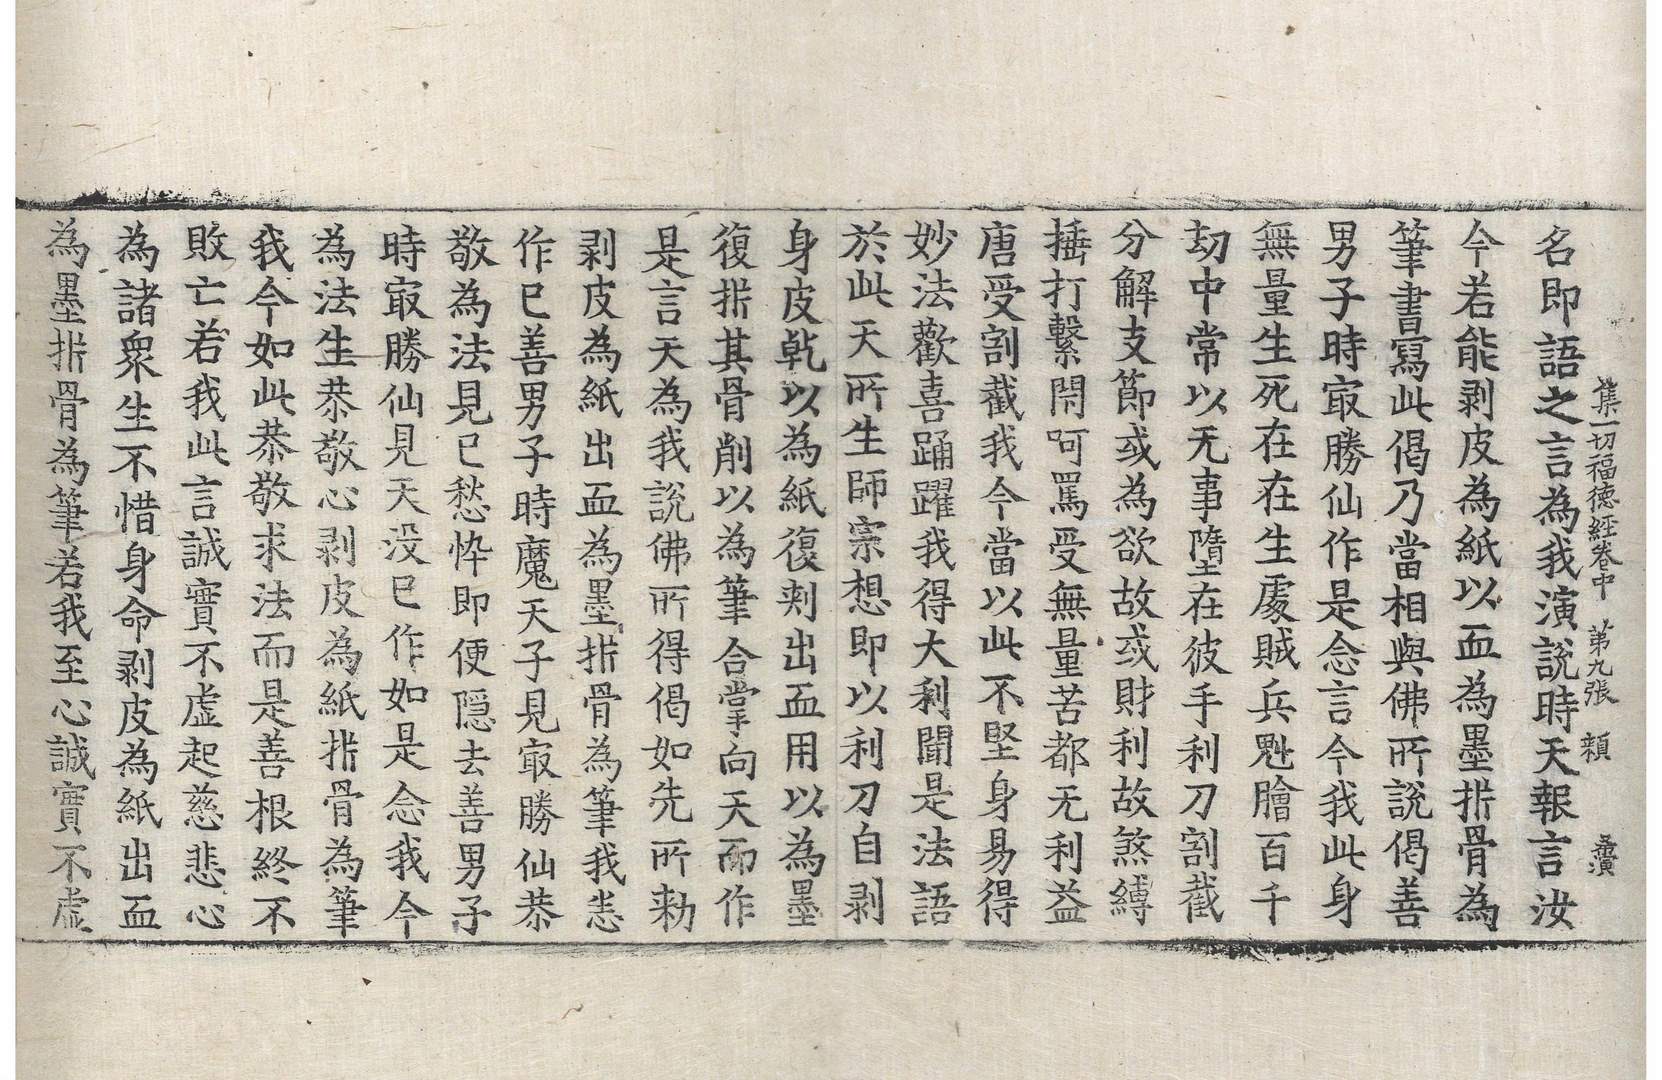 集一切福德經卷中 第九張 頛
名即語之言為我演說時天報言汝
今若能剥皮為紙以血為墨㭊骨為
筆書寫此偈乃當相與佛所說偈善
男子時㝡勝仙作是念言今我此身
無量生死在在生處賊兵魁膾百千
劫中常以无事墮在彼手利刀割截
分解支節或為欲故或財利故煞縛
捶打繫閇呵罵受無量苦都无利益
唐受割截我今當以此不堅身易得
妙法歡喜踊躍我得大利聞是法語
於此天所生師宗想即以利刀自剥
身皮乾以為紙復刾出血用以為墨
復㭊其骨削以為筆合掌向天而作
是言天為我說佛所得偈如先所勑
剥皮為紙出血為墨㭊骨為筆我悉
作已善男子時魔天子見㝡勝仙恭
敬為法見已愁忰即便隠去善男子
時㝡勝仙見天没已作如是念我今
為法生恭敬心剥皮為紙㭊骨為筆
我今如此恭敬求法而是善根終不
敗亡若我此言誠實不虛起慈悲心
為諸衆生不惜身命剥皮為紙出血
為墨㭊骨為筆若我至心誠實不虛